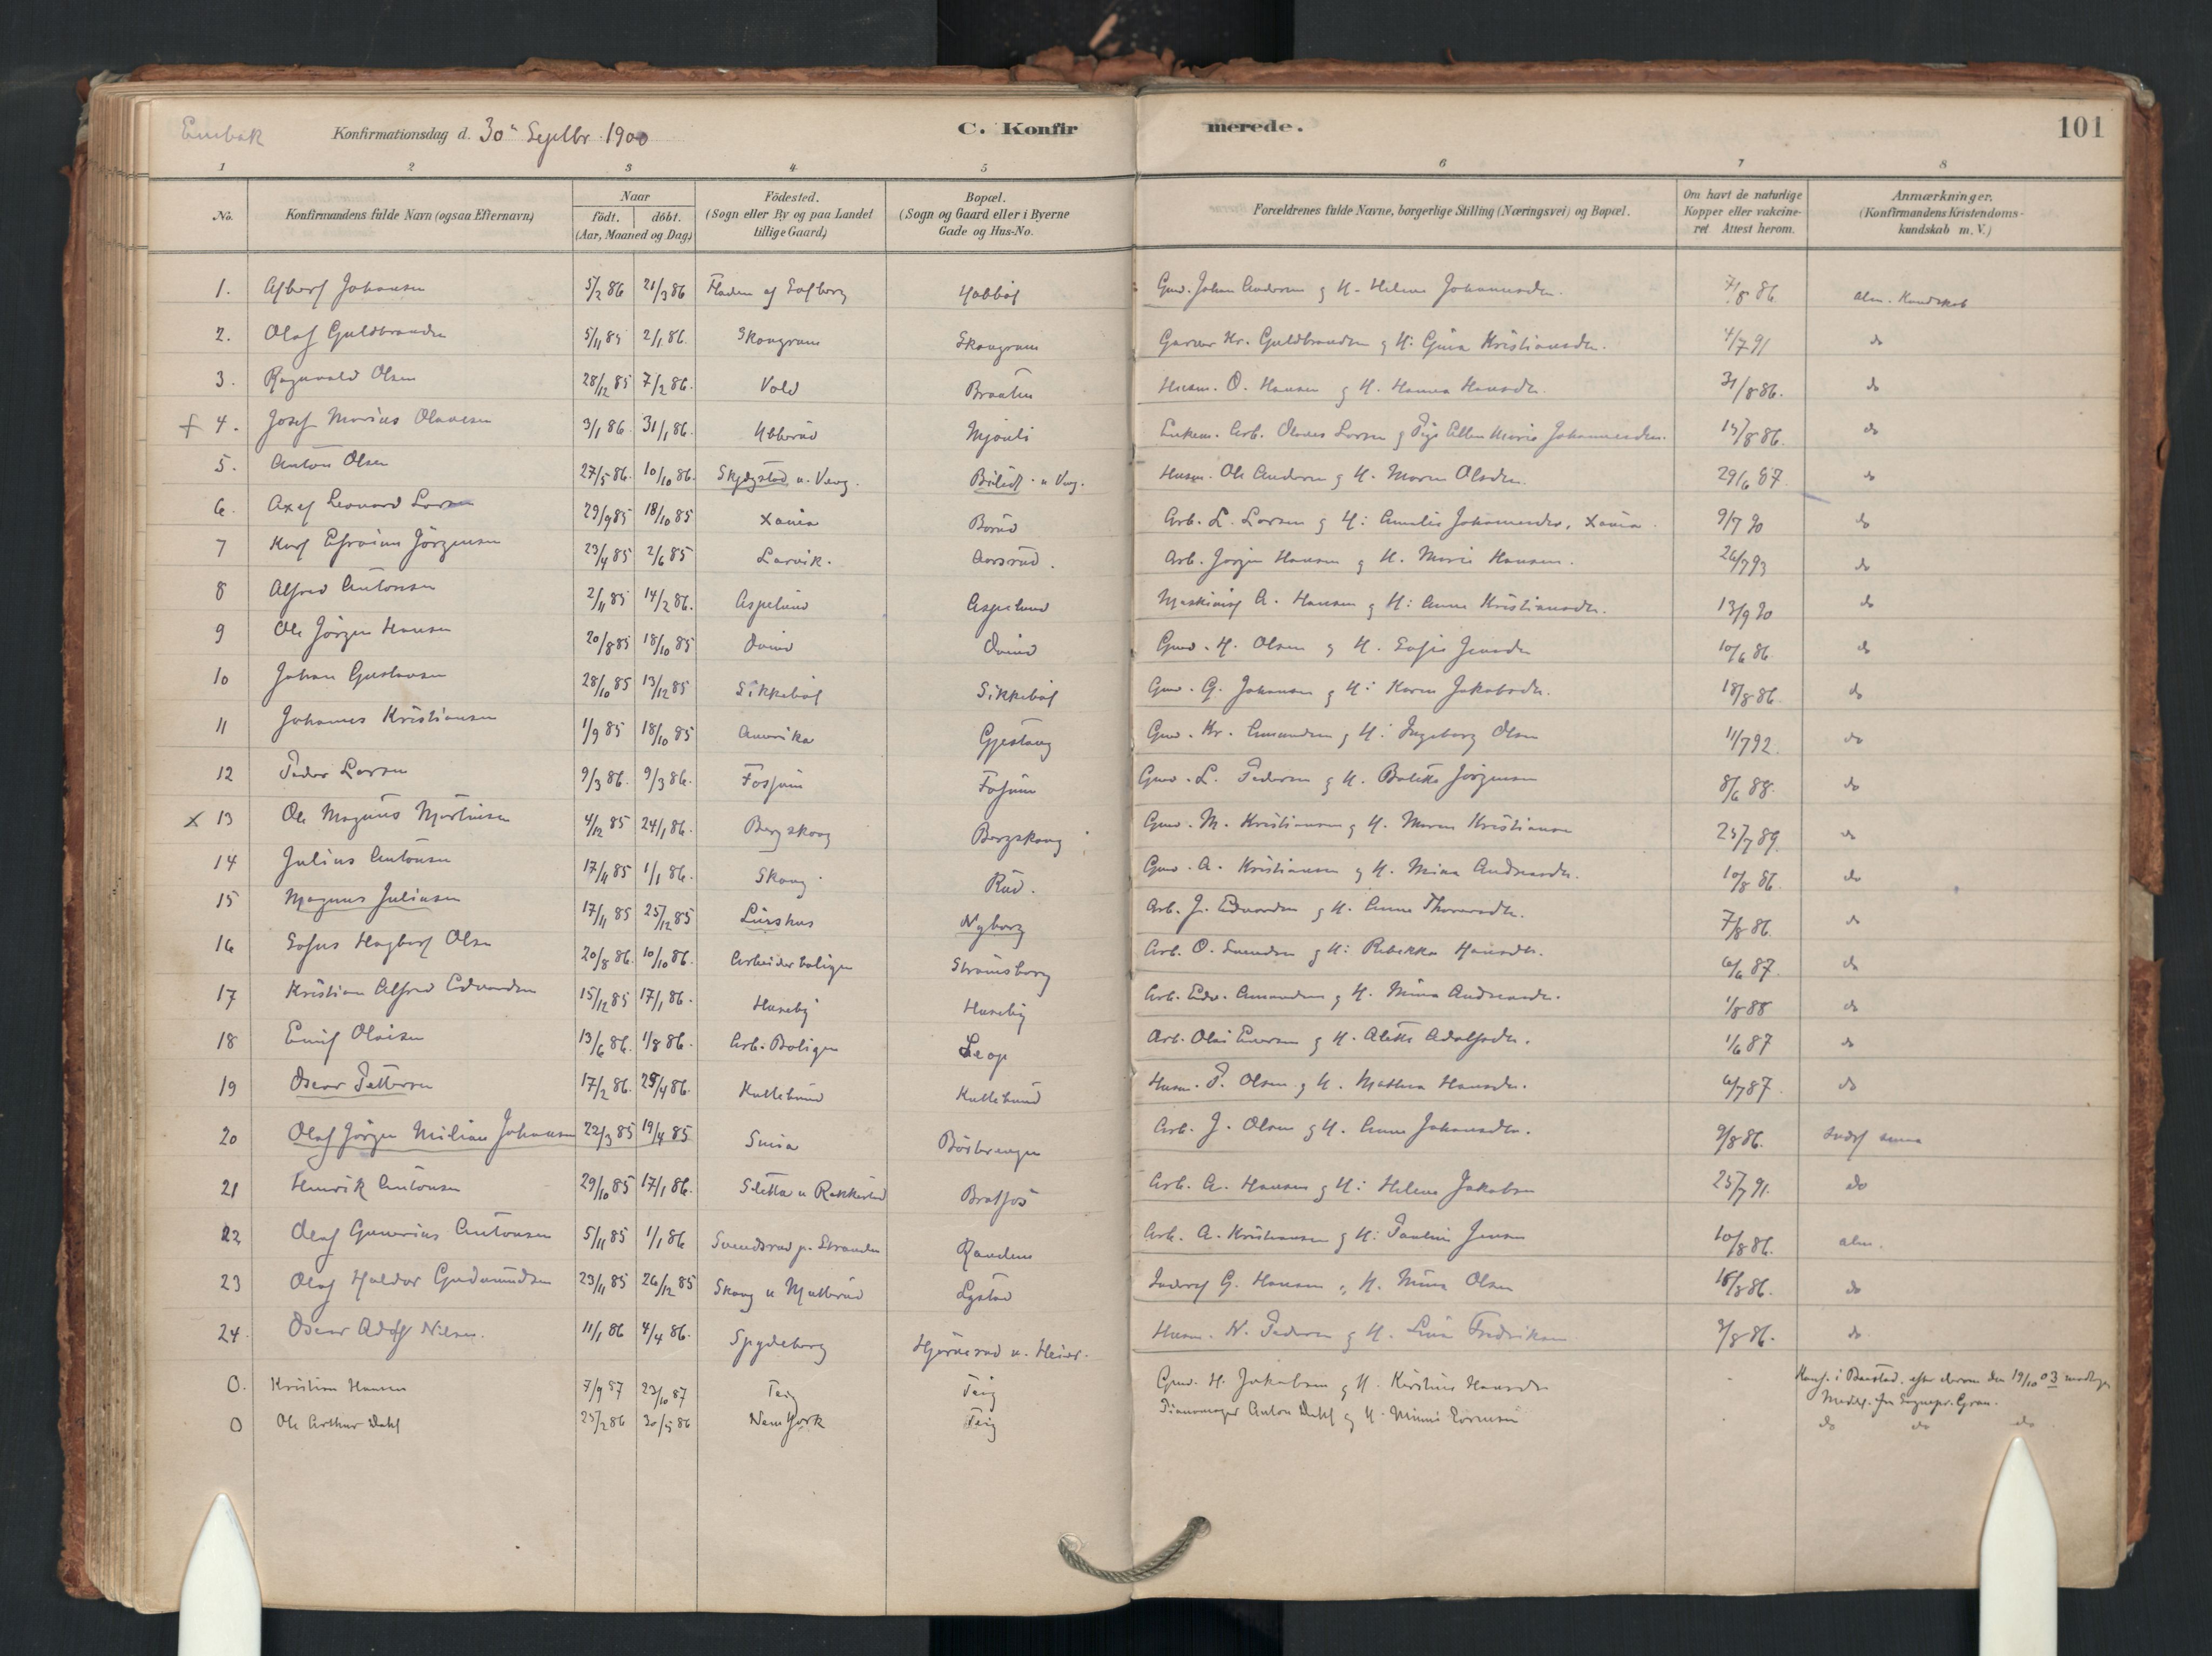 Konfirmationsdag d. 30 Septbr 1900 C. Konfir merede. 101
1 2 3 4 5 6 7 8
No. Konfirmandens fulde Navn (ogsaa Efternavn) Naar födt. döbt. (Aar, Maaned og Dag) Födested. (Sogn eller By og paa Landet tillige Gaard) Bopæl. (Sogn og Gaard eller i Byerne Gade og Hus-No. Forældrenes fulde Navne, borgerlige Stilling (Næringsvei) og Bopæl. Om havt de naturlige Kopper eller vakcineret Attest herom. Anmærkninger. (Konfirmandens Kristendomskundskab m. V.)
1. Albert Johansen 5/2 86 21/3 86 Gmd. Johan Andersen g H. Helene Johannesdtr. 7/8 86 alm. Kundskab
2. Olaf Guldbrandsen 5/11 85 2/1 86. Skaugrum Skaugrum Garver Kr. Guldbrandsen g H: Gina Kristiansdtr. 4/7 91 do
3. Ragnvald Olsen 28/12 85 7/2 86. Vold Braaten Husm. O. Hansen g H. Hanna Hansdtr. 31/8 86. do
4. Josef Marius Olavesen 3/1 86 31/1 86. Mjonli Enkem. Arb. Olaves Larsen g Pige Ellen Marie Johannesdtr. 13/8 86. do
5. Anton Olsen 27/5 86. 10/10 86. Husm. Ole Andersen g H. Maren Olsdtr. 29/6 87. do
6. Axel Leonard Larsen 29/9 85 18/10 85 Xania Borud Arb. L. Larsen g H: Amalie Johannesdtr, Xania. 9/7 90 do
7 Karl Efraim Jörgensen 23/4 85 2/6 85 Larvik. Aarsrud. Arb. Jörgen Hansen g H. Marie Hansen. 26/7 93 do
8 Alfred Antonsen 2/11 85 14/2 86. Aspelund Aspelund Maskinist A. Hansen g H: Anna Kristiansdtr. 13/9 90 do
9 Ole Jörgen Hansen 20/8 85 18/10 85 Gmd. H. Olsen g H. Sofie Jensdtr 10/6 86 do
10 Johan Gustavsen 28/10 85 13/12 85 Sikkeböl Sikkeböl Gmd. G. Johansen g H: Karen Jakobsdtr. 18/8 86. do
11 Johannes Kristiansen 1/9 85 18/10 85 Amerika Gjestang Gmd. Kr. Amundsen g H: Ingeborg Olsen 11/7 92. do
12 Peder Larsen 9/3 86. 9/3 86. Fossum Fosum Gmd. L. Pedersen g H. Bolette Jörgensen 8/6 88. do
x 13 Ole Magnus Martinsen 4/12 85 24/1 86. Bergskaug Bergskaug Gmd. M. Kristiansen g H. Maren Kristiansen 25/7 89. do
14 Julius Antonsen 17/11 85 1/1 86. Skaug Rud. Gmd. A. Kristiansen g H. Mina Andreasdtr. 10/8 86. do
15 Magnus Juliusen 17/11 85 25/12 85 Nyborg Arb. J. Edvardsen g H. Anne Thorersdtr. 7/8 86. do
16 Sofus Hagbart Olsen 20/8 86. 10/10 86. Arbeiderboligen Strömsborg Arb. O. Svendsen g H: Rebekka Hansdtr. 6/6 87. do
17 Kristian Alfred Edvardsen 15/12 85 17/1 86. Huseby Huseby Arb. Edv. Amundsen g H. Mina Andreasdtr. 1/8 88 do
18 Emil Olaisen 13/6 86. 1/8 86. Arb. Boligen Leop Arb. Olai Eversen g H. Alette Adolfsdtr. 1/6 87 do
19 Oscar Pettersen 17/2 86. 25/4 86. Kullebund Kullebund Husm. P. Olsen g H. Mathea Hansdtr. 6/7 87. do
20 Olaf Jörgen Milian Johansen 22/3 85 19/4 85 Smia Börbrengen Arb. J. Olsen g H. Anna Johansdtr. 9/8 86.
21 Henrik Antonsen 29/10 85 17/1 86. Sletta u Rakkestad Bratfos Arb. A. Hansen g H: Helene Jakobsen 25/7 91. do
22 Olaf Gunerius Antonsen 5/11 85 1/1 86 Svendsrud p. Stranden Randem Arb. A. Kristiansen g H: Pauline Jensen 10/8 86. alm.
23 Olaf Haldor Gudmundsen 23/11 85 26/12 85 Skaug u Mulleröd Lystad G. Hansen g H. Mina Olsen 18/8 86. do
24. Oscar Adolf Nilsen. 11/1 86 4/4 86. Spydeberg Hjörnerud u. Heier. Husm. N. Pedersen g H. Lina Fredriksen 9/8 86. do
O. Kristian Hansen 7/9 87 23/10 87 Teig Teig Gmd. H. Jakobsen g H. Kirstine Hansdtr Konf. i Baastad. efter derom den 19/10 03 modtagen Meddel. fra Sognepr. Gran.
O Ole Arthur Dahl 25/2 86 30/5 86 New York Teig Pianomager Anton Dahl g H. Minni Sörensen do do do